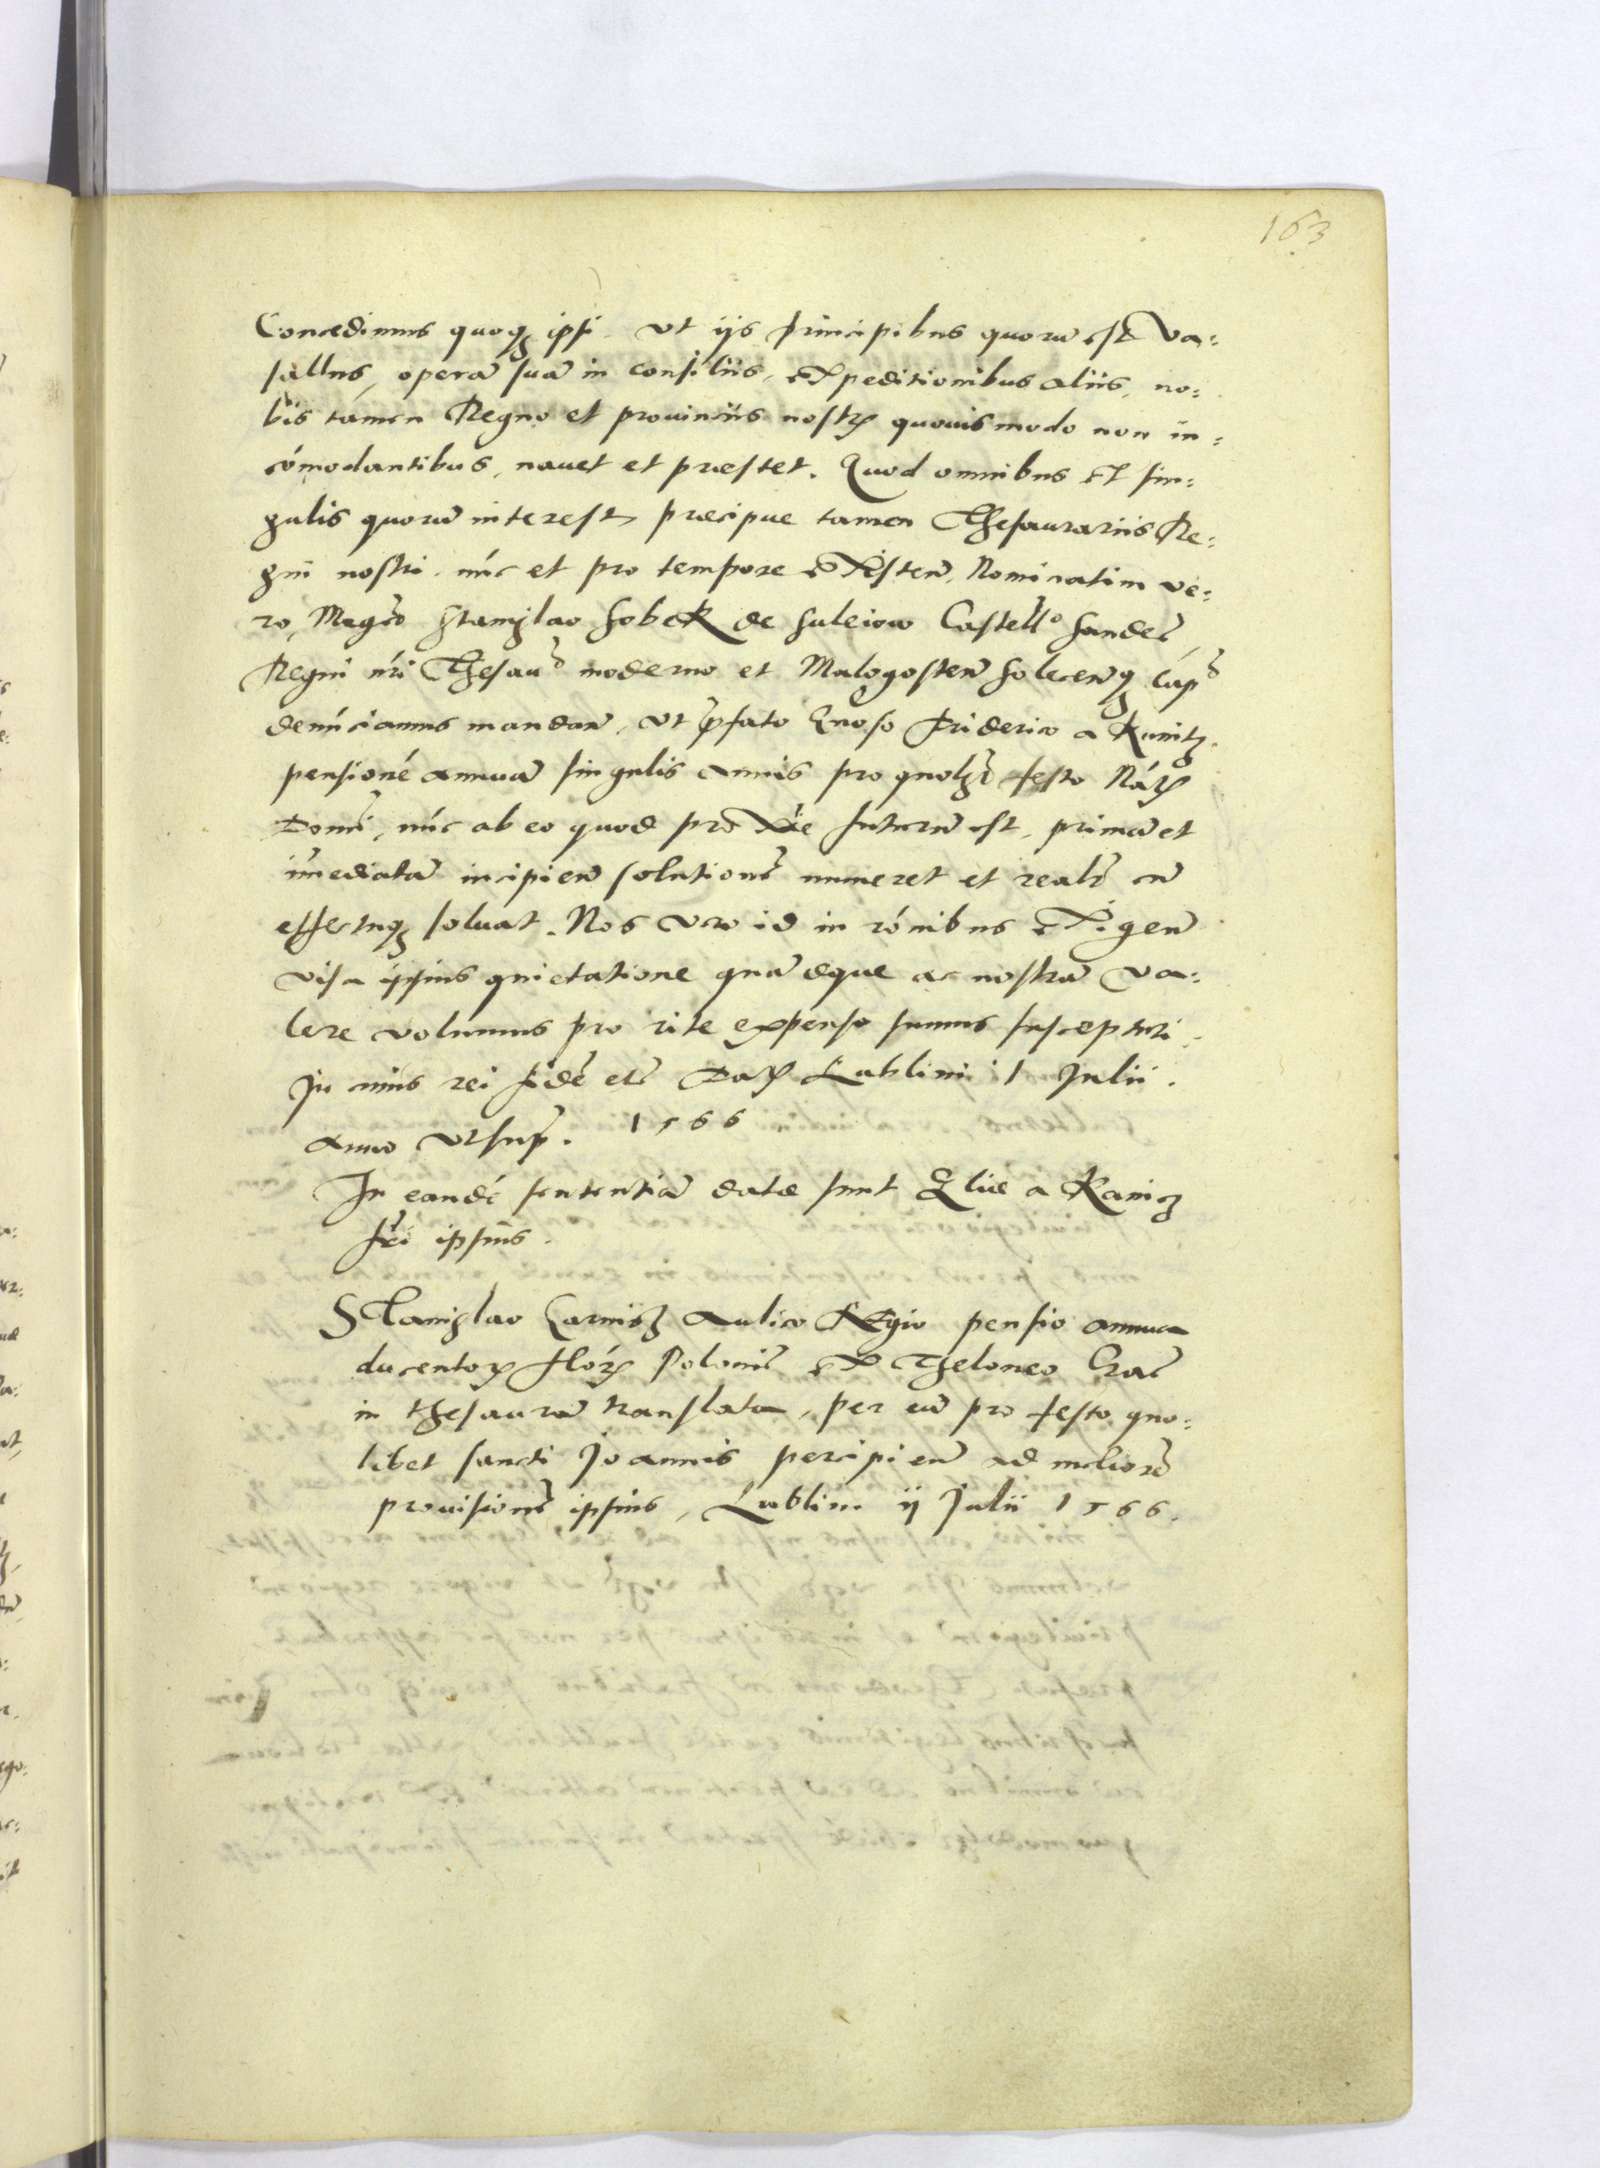 163
Concedimus quoq₃ ipsi. Vt ijs Principibus quorū est Va:
sallus, operā suā in consiliis, Expeditionibus aliis, no:
bis tamen Regno et prouinciis nostꝝ quouismodo non in:
cōmodantibus, nauet et præstet. Quod omnibus Et sin:
gulis quorū interest, præcipue tamen Thesaurariis Re:
gni nostri. nūc et pro tempore Existeñ, Nominatim ve:
ro, Magco Stanislao Sobek de Suleiow Castello Sandeč,
Regni nri Thesauro moderno et Malogosteñ Soleceñq₃ Capo
denūciamus mandañ, Vt p̄fato Gnoso Friderico a Kanitz
pensionē annuā singulis annis pro quolzt festo Natꝭ
Domi, nūc ab eo quod proxie futurū est, primā et
imediatā incipieñ solutionē numeret et realr cū
effectuq₃ soluat. Nos vero id in rōnibus Exigeñ
visa ipsius quietatione quā æque ac nostrā va:
lere volumus pro rite expenso sumus suscepturi.
In cuius rei fidē etc Datꝭ Lublini 1 Julii.
Anno Vt sup. 1566
In eandē sententiā datæ sunt Eliæ a Kanicz
fri ipsius.
Stanislao Carnisz Aulico Regio pensio annua
ducentoꝝ florꝝ Poloniē Ex Theloneo Crač
in thesaurū translata, per eū pro festo quo:
libet sancti Joannis percipieñ ad meliorē
prouisionē ipsius, Lublini ij Julii 1566.